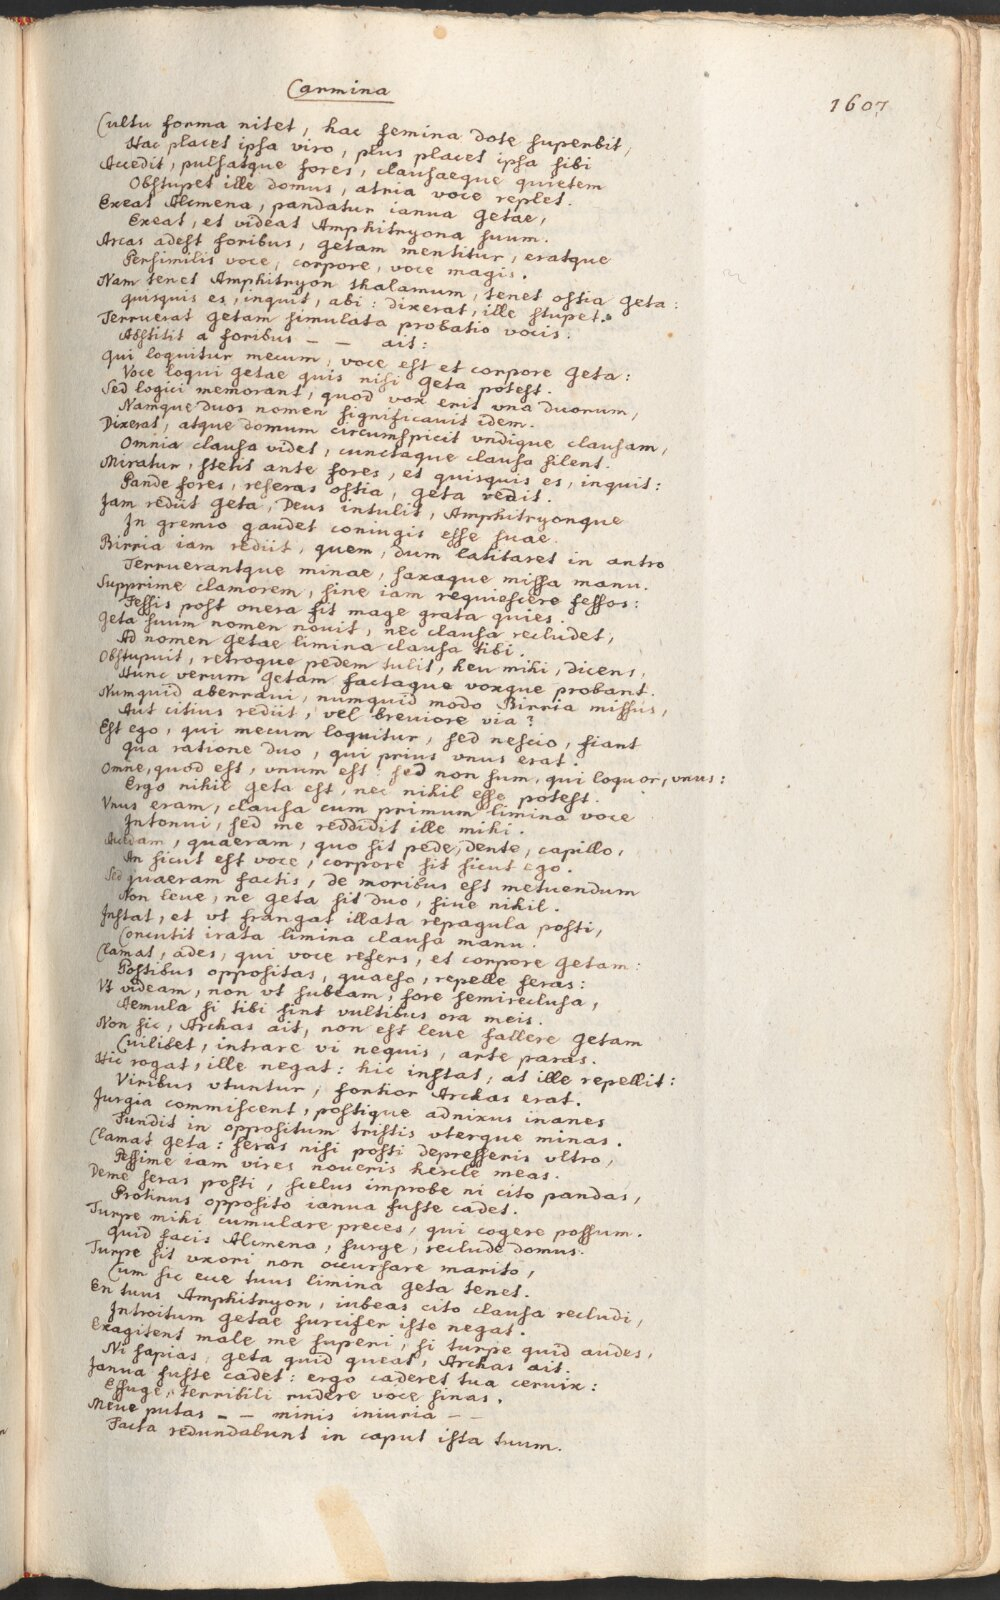 Carmina
1607
Cultu forma nitet, hac femina dote superbit,
Hac placet ipsa viro, plus placet ipsa sibi
Accedit, pulsatque fores, clausaeque quietem
Obstupet ille domus, atria voce replet.
Exeat Alcmena, pandatur ianua Getae,
Exeat, et videat Amphitryona suum.
Arcas adest foribus, Getam mentitur, eratque
Persimilis voce, corpore, voce magis.
Nam tenet Amphitryon thalamum, tenet ostia Geta:
quisquis es, inquit, abi: dixerat, ille stupet.
Terruerat Getam simulata probatio vocis.
Abstitit a foribus – – ait:
Qui loquitur mecum, voce est et corpore Geta:
Voce loqui Getae quis nisi Geta potest.
Sed logici memorant, quod vox erit vna duorum,
Namque duos nomen significauit idem.
Dixerat, atque domum circumspicit vndique clausam,
Omnia clausa videt, cunctaque clausa silent.
Miratur, stetit ante fores, et quisquis es, inquit:
Pande fores, reseras ostia, Geta redit.
Iam rediit Geta, Deus intulit, Amphitryonque
In gremio gaudet coniugis esse suae.
Birria iam rediit, quem, dum latitaret in antro
Terruerantque minae, saxaque missa manu.
Supprime clamorem, sine iam requiescere fessos:
Fessis post onera sit mage grata quies.
Geta suum nomen nouit, nec clausa recludet,
Ad nomen Getae limina clausa tibi.
Obstupuit, retroque pedem tulit, heu mihi, dicens,
Hunc verum Getam factaque voxque probant.
Numquid aberraui, numquid modo Birria missus,
Aut citius rediit, vel breuiore via?
Est ego, qui mecum loquitur, sed nescio, fiant
qua ratione duo, qui prius vnus erat.
Omne, quod est, vnum est: sed non sum, qui loquor, vnus:
Ergo nihil Geta est, nec nihil esse potest.
Vnus eram, clausa cum primum limina voce
Intonui, sed me reddidit ille mihi.
Accedam, quaeram, quo sit pede, dente, capillo,
An sicut est voce, corpore sit sicut ego.
Sed quaeram factis, de moribus est metuendum
Non leue, ne Geta sit duo, siue nihil.
Instat, et vt frangat illata repagula posti,
Concutit irata limina clausa manu.
Clamat, ades, qui voce refers, et corpore Getam:
Postibus oppositas, quaeso, repelle seras:
Vt videam, non vt subeam, fore semireclusa,
Aemula si tibi sint vultibus ora meis.
Non sic, Archas ait, non est leue fallere Getam
Cuilibet, intrare vi nequis, arte paras.
Hic rogat, ille negat: hic instat, at ille repellit:
Viribus vtuntur, fortior Archas erat.
Jurgia commiscent, postique adnixus inanes
Fundit in oppositum tristis vterque minas.
Clamat Geta: seras nisi posti depresseris vltro,
Pessime iam vires noueris hercle meas.
Deme seras posti, scelus improbe ni cito pandas,
Protinus opposito ianua fuste cadet.
Turpe mihi cumulare preces, qui cogere possum.
Quid facis Alcmena, surge, reclude domus.
Turpe sit vxori non occursare marito,
Cum sic ecce tuus limina Geta tenet.
En tuus Amphitryon, iubeas cito clausa recludi,
Introitum Getae furcifer iste negat.
Exagitent male me superi, si turpe quid audes,
Ni sapias, Geta quid queat, Archas ait.
Ianua fuste cadet: ergo caderet tua ceruix:
Effuge, terribili rudere voce sinas.
Mene putas – – minis iniuria – –
Facta redundabunt in caput ista tuum.